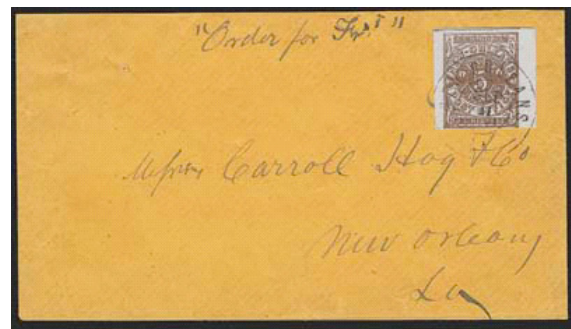 "Order for Frt"
Messrs Carroll Hoy & Co
New Orleans
La
5